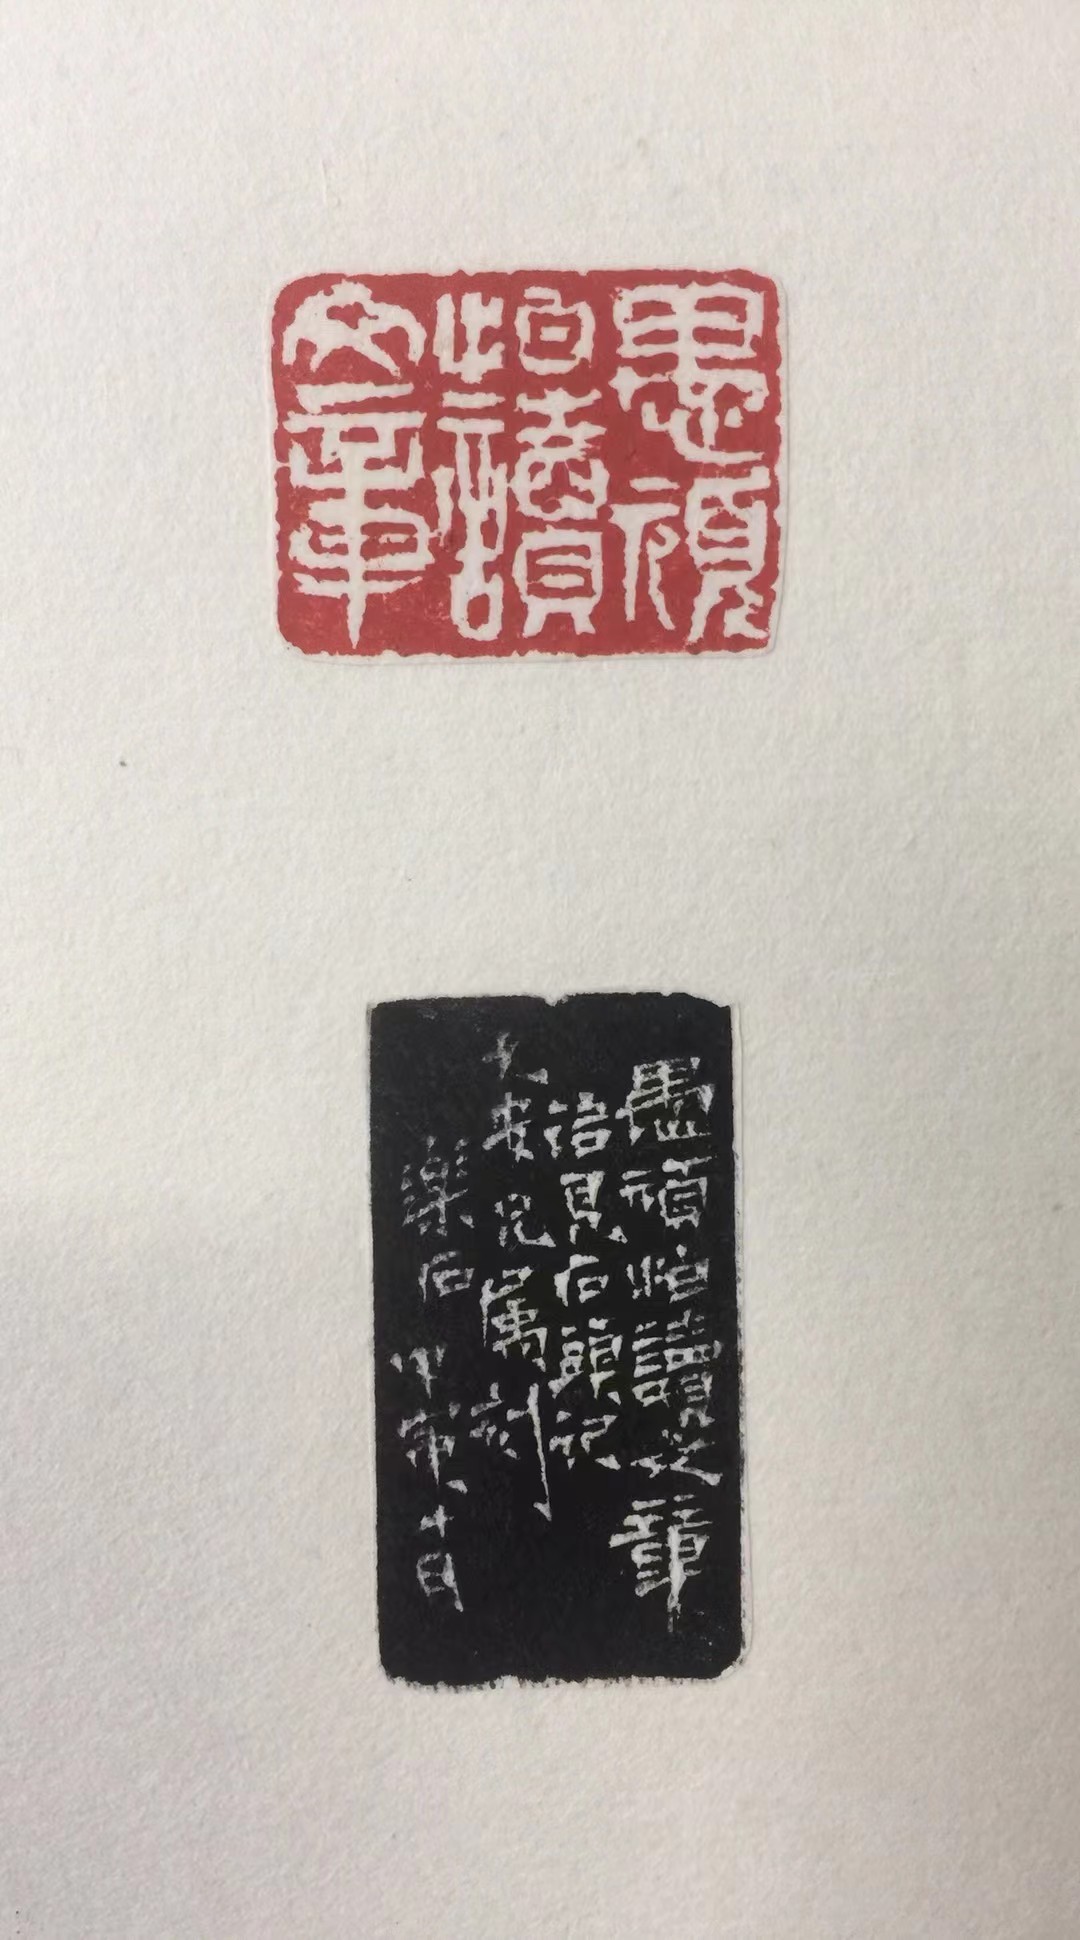 愚頑
怕讀
文章
愚頑怕讀文章
語見石頭記
安兄属刻
樂石 甲寅十月